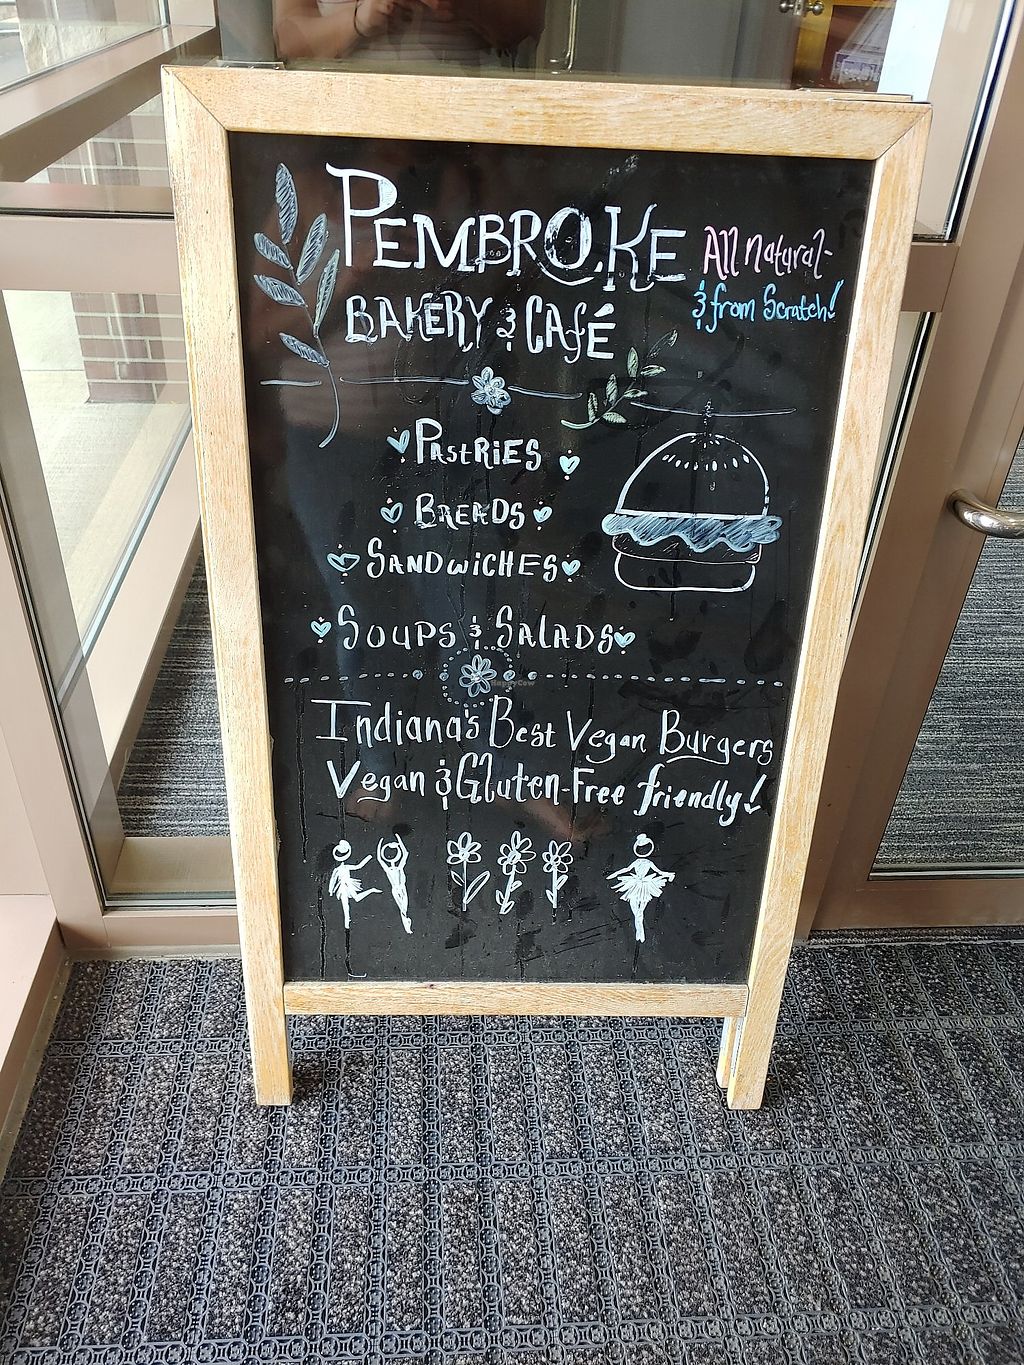 PEMBROKE
All natural-
& from Scratch!
BAKERY & CAFÉ
PASTRIES
BREADS
SANDWICHES
SOUPS & SALADS
HappyCow
Indiana's Best Vegan Burgers
Vegan & Gluten-Free friendly!